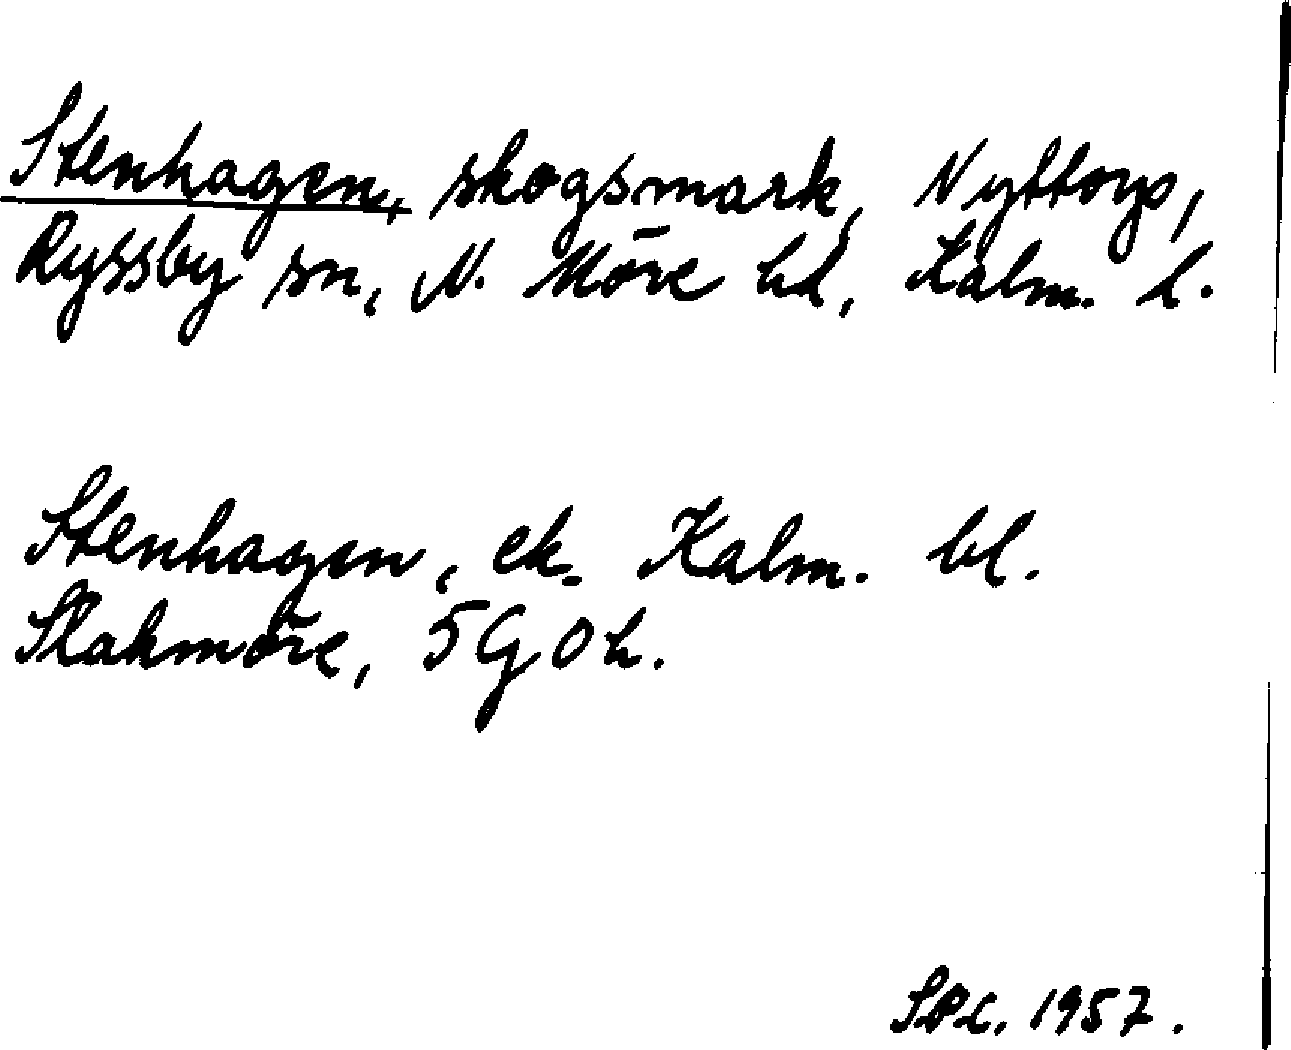 Stenhagen, skogsmark, Nyttorp,
Ryssby sn, N. Möre hd, Kalm. l.
Stenhagen, ek. Kalm. bl.
Slakmöre, 5G0h.
1957.